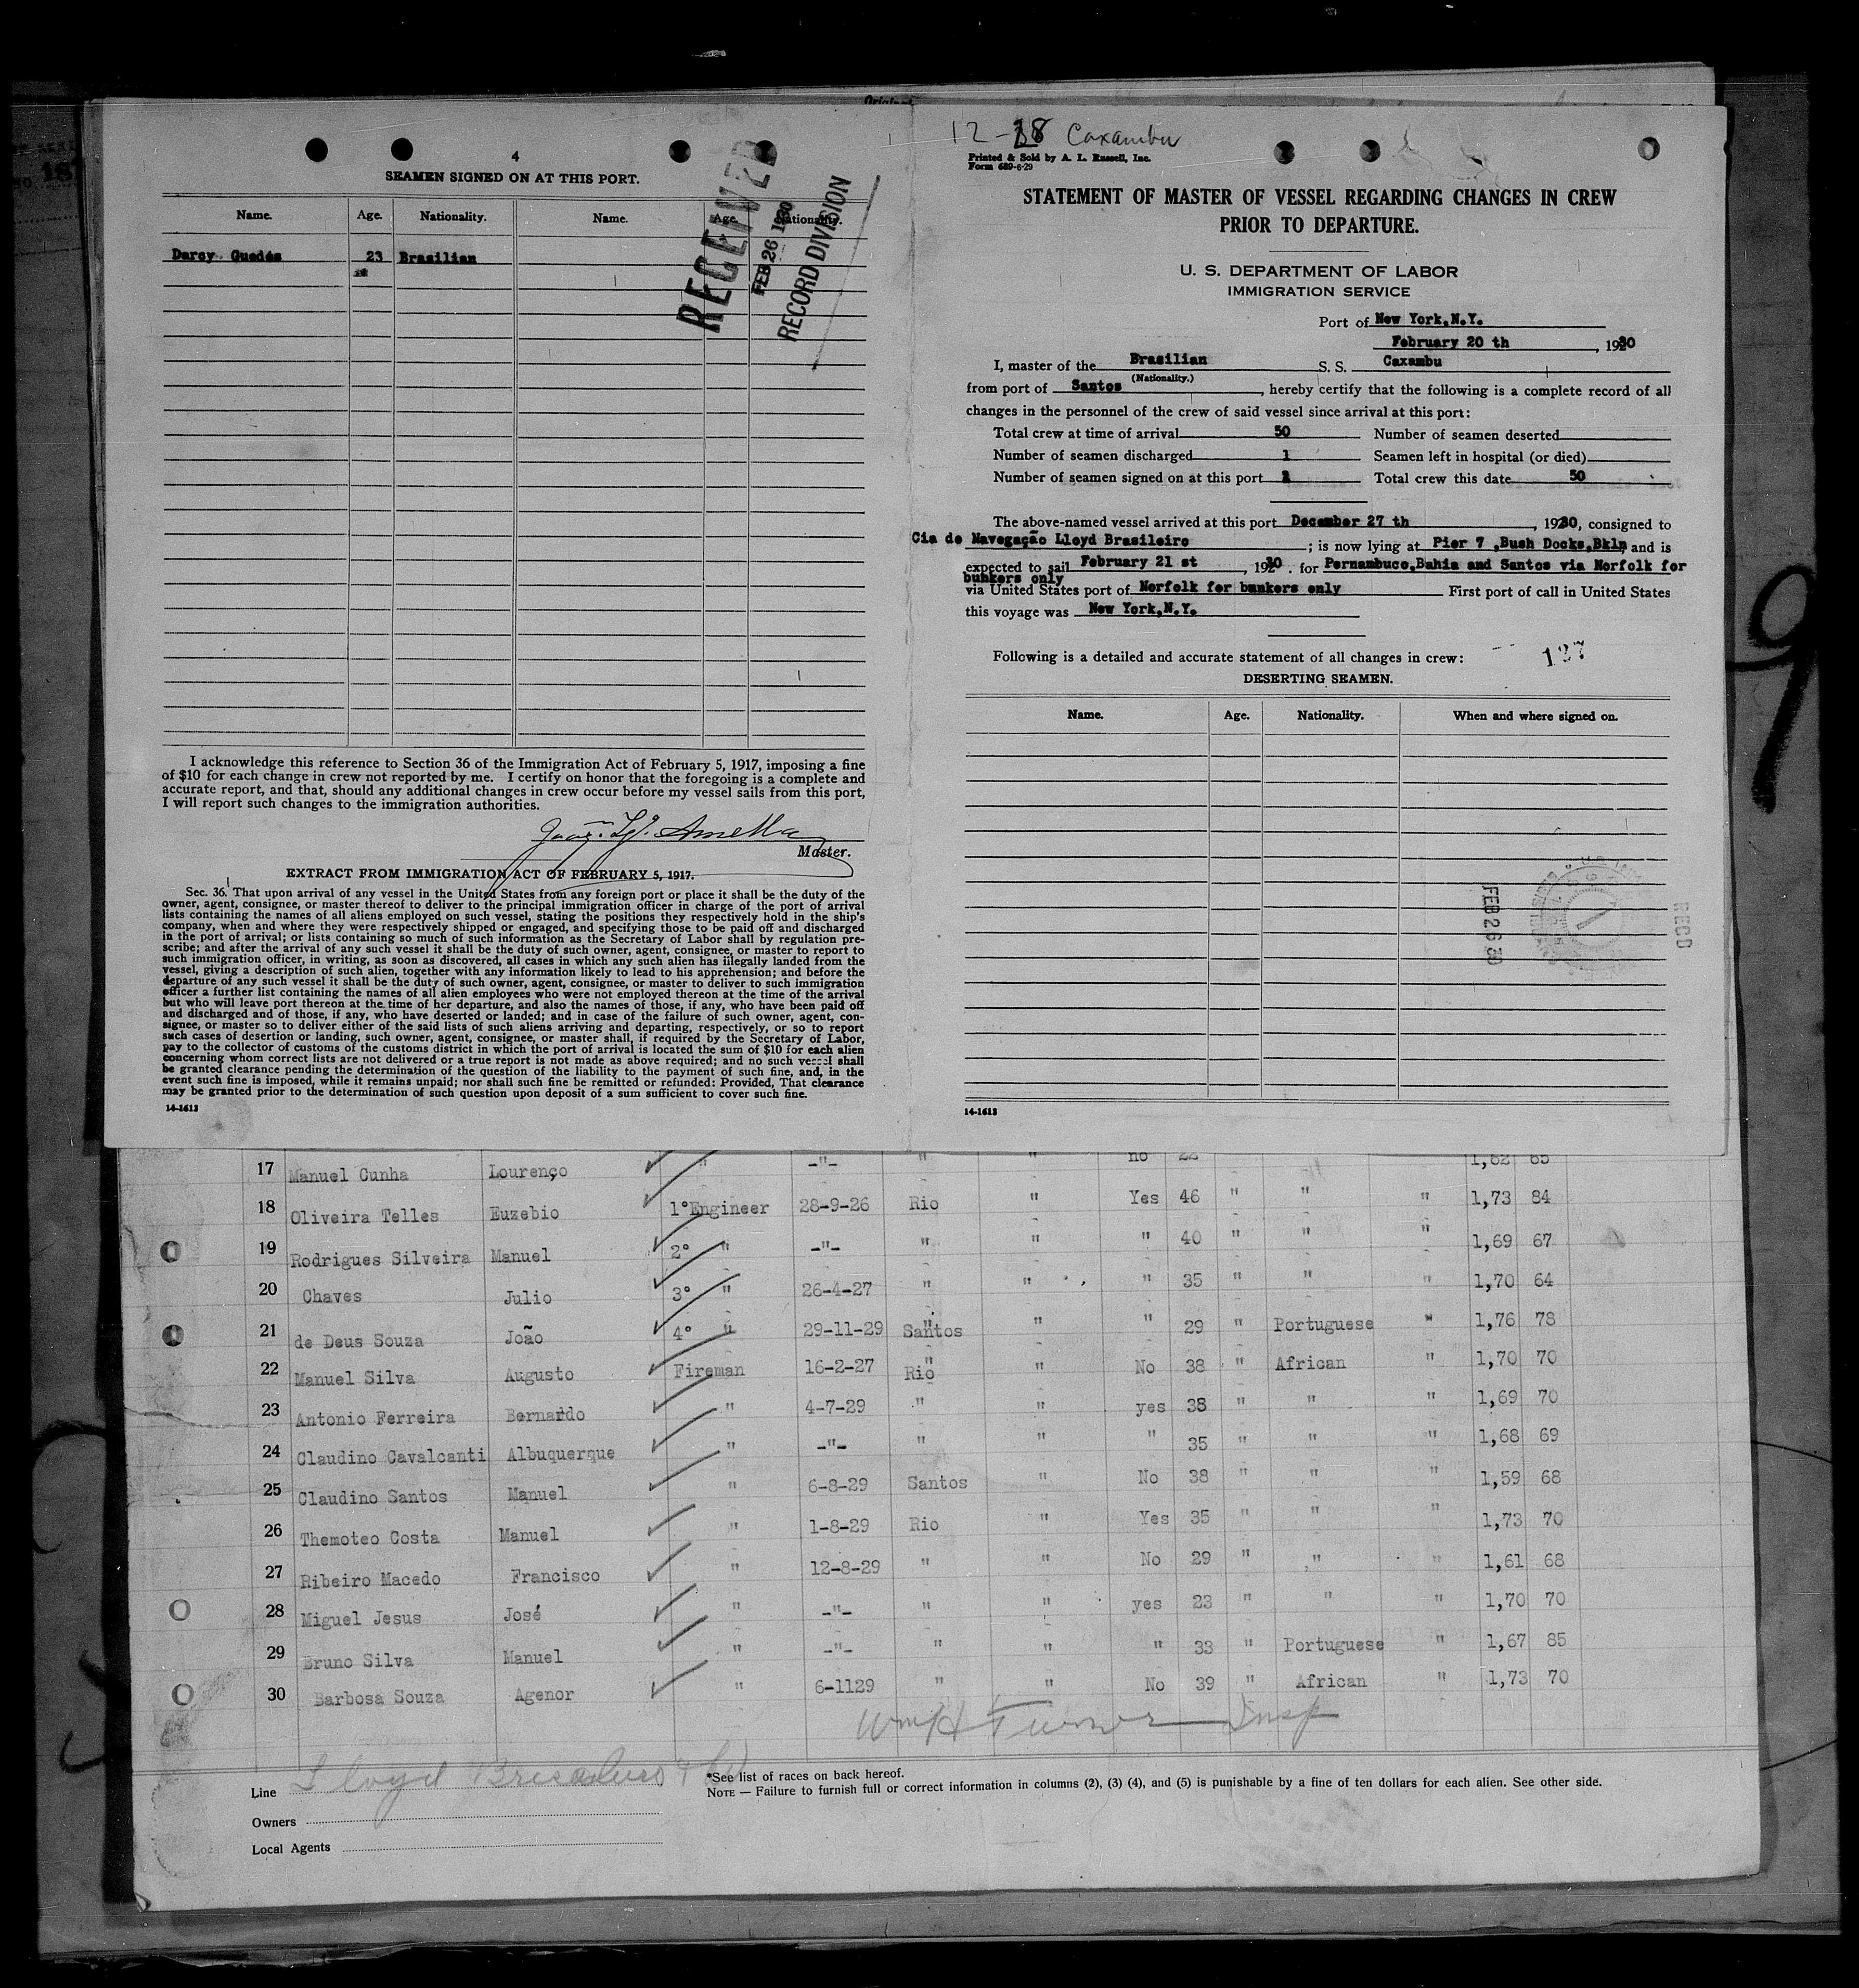 4
SEAMEN SIGNED ON AT THIS PORT.
Name. Age. Nationality. Name. Age. Nationality.
Darcy Guedes 23 Brasilian
RECEIVED
FEB 26 1930
RECORD DIVISION
I acknowledge this reference to Section 36 of the Immigration Act of February 5, 1917, imposing a fine
of $10 for each change in crew not reported by me. I certify on honor that the foregoing is a complete and
accurate report, and that, should any additional changes in crew occur before my vessel sails from this port,
I will report such changes to the immigration authorities.
Master.
EXTRACT FROM IMMIGRATION ACT OF FEBRUARY 5, 1917.
Sec. 36. That upon arrival of any vessel in the United States from any foreign port or place it shall be the duty of the
owner, agent, consignee, or master thereof to deliver to the principal immigration officer in charge of the port of arrival
lists containing the names of all aliens employed on such vessel, stating the positions they respectively hold in the ship's
company, when and where they were respectively shipped or engaged, and specifying those to be paid off and discharged
in the port of arrival; or lists containing so much of such information as the Secretary of Labor shall by regulation pre-
scribe; and after the arrival of any such vessel it shall be the duty of such owner, agent, consignee, or master to report to
such immigration officer, in writing, as soon as discovered, all cases in which any such alien has illegally landed from the
vessel, giving a description of such alien, together with any information likely to lead to his apprehension; and before the
departure of any such vessel it shall be the duty of such owner, agent, consignee, or master to deliver to such immigration
officer a further list containing the names of all alien employees who were not employed thereon at the time of the arrival
but who will leave port thereon at the time of her departure, and also the names of those, if any, who have been paid off
and discharged and of those, if any, who have deserted or landed; and in case of the failure of such owner, agent, con-
signee, or master so to deliver either of the said lists of such aliens arriving and departing, respectively, or so to report
such cases of desertion or landing, such owner, agent, consignee, or master shall, if required by the Secretary of Labor,
pay to the collector of customs of the customs district in which the port of arrival is located the sum of $10 for each alien
concerning whom correct lists are not delivered or a true report is not made as above required; and no such vessel shall
be granted clearance pending the determination of the question of the liability to the payment of such fine, and, in the
event such fine is imposed, while it remains unpaid; nor shall such fine be remitted or refunded: Provided, That clearance
may be granted prior to the determination of such question upon deposit of a sum sufficient to cover such fine.
14-1613
12-28 Caxambu
Printed & Sold by A. L. Russell, Inc.
Form 689-6-29
STATEMENT OF MASTER OF VESSEL REGARDING CHANGES IN CREW
PRIOR TO DEPARTURE.
U. S. DEPARTMENT OF LABOR
IMMIGRATION SERVICE
Port of New York,N.Y.
February 20 th, 1930
I, master of the Brasilian S. S. Caxambu
(Nationality.)
from port of Santos, hereby certify that the following is a complete record of all
changes in the personnel of the crew of said vessel since arrival at this port:
Total crew at time of arrival 50 Number of seamen deserted
Number of seamen discharged 1 Seamen left in hospital (or died)
Number of seamen signed on at this port 1 Total crew this date 50
The above-named vessel arrived at this port December 27 th, 1930, consigned to
Cia de Navegação Lloyd Brasileiro; is now lying at Pier 7 ,Bush Docks,Bkln and is
expected to sail February 21 st, 1930. for Pernambuco,Bahia and Santos via Norfolk for
bunkers only
via United States port of Norfolk for bunkers only First port of call in United States
this voyage was New York,N.Y.
Following is a detailed and accurate statement of all changes in crew: 127
DESERTING SEAMEN.
Name. Age. Nationality. When and where signed on.
FEB 26 30
RECD
14-1613
17 Manuel Cunha Lourenço " -"- " " no 22 1,62 65
18 Oliveira Telles Euzebio 1°Engineer 28-9-26 Rio " Yes 46 " " " 1,73 84
19 Rodrigues Silveira Manuel 2° " -"- " " " 40 " " " 1,69 67
20 Chaves Julio 3° " 26-4-27 " " " 35 " " " 1,70 64
21 de Deus Souza João 4° " 29-11-29 Santos " " 29 " Portuguese " 1,76 78
22 Manuel Silva Augusto Fireman 16-2-27 Rio " No 38 " African " 1,70 70
23 Antonio Ferreira Bernardo " 4-7-29 " " yes 38 " " " 1,69 70
24 Claudino Cavalcanti Albuquerque " -"- " " " 35 " " " 1,68 69
25 Claudino Santos Manuel " 6-8-29 Santos " No 38 " " " 1,59 68
26 Themoteo Costa Manuel " 1-8-29 Rio " Yes 35 " " " 1,73 70
27 Ribeiro Macedo Francisco " 12-8-29 " " No 29 " " " 1,61 68
28 Miguel Jesus José " -"- " " yes 23 " " " 1,70 70
29 Bruno Silva Manuel " -"- " " " 33 " Portuguese " 1,67 85
30 Barbosa Souza Agenor " 6-1129 " " No 39 " African " 1,73 70
Wm H Turner Insp
Line Lloyd
Owners
Local Agents
*See list of races on back hereof.
NOTE — Failure to furnish full or correct information in columns (2), (3) (4), and (5) is punishable by a fine of ten dollars for each alien. See other side.
9